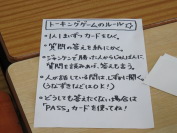 トーキングゲームのルール☆
・1人1まいずつカードをひく。
・質問の答えを紙にかく。
・ジャンケンで勝った人からじゅんばんに、
質問を読みあげ、答えを言う。
・人が話している間は、しずかに聞く。
(うなずきなどはOK!)
・どうしても答えたくない場合は
「PASS」カードを使ってね!